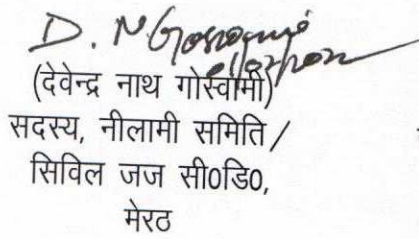 D. N Goswami
(देवेन्द्र नाथ गोस्वामी)
सदस्य, नीलामी समिति /
सिविल जज सी0डि0,
मेरठ